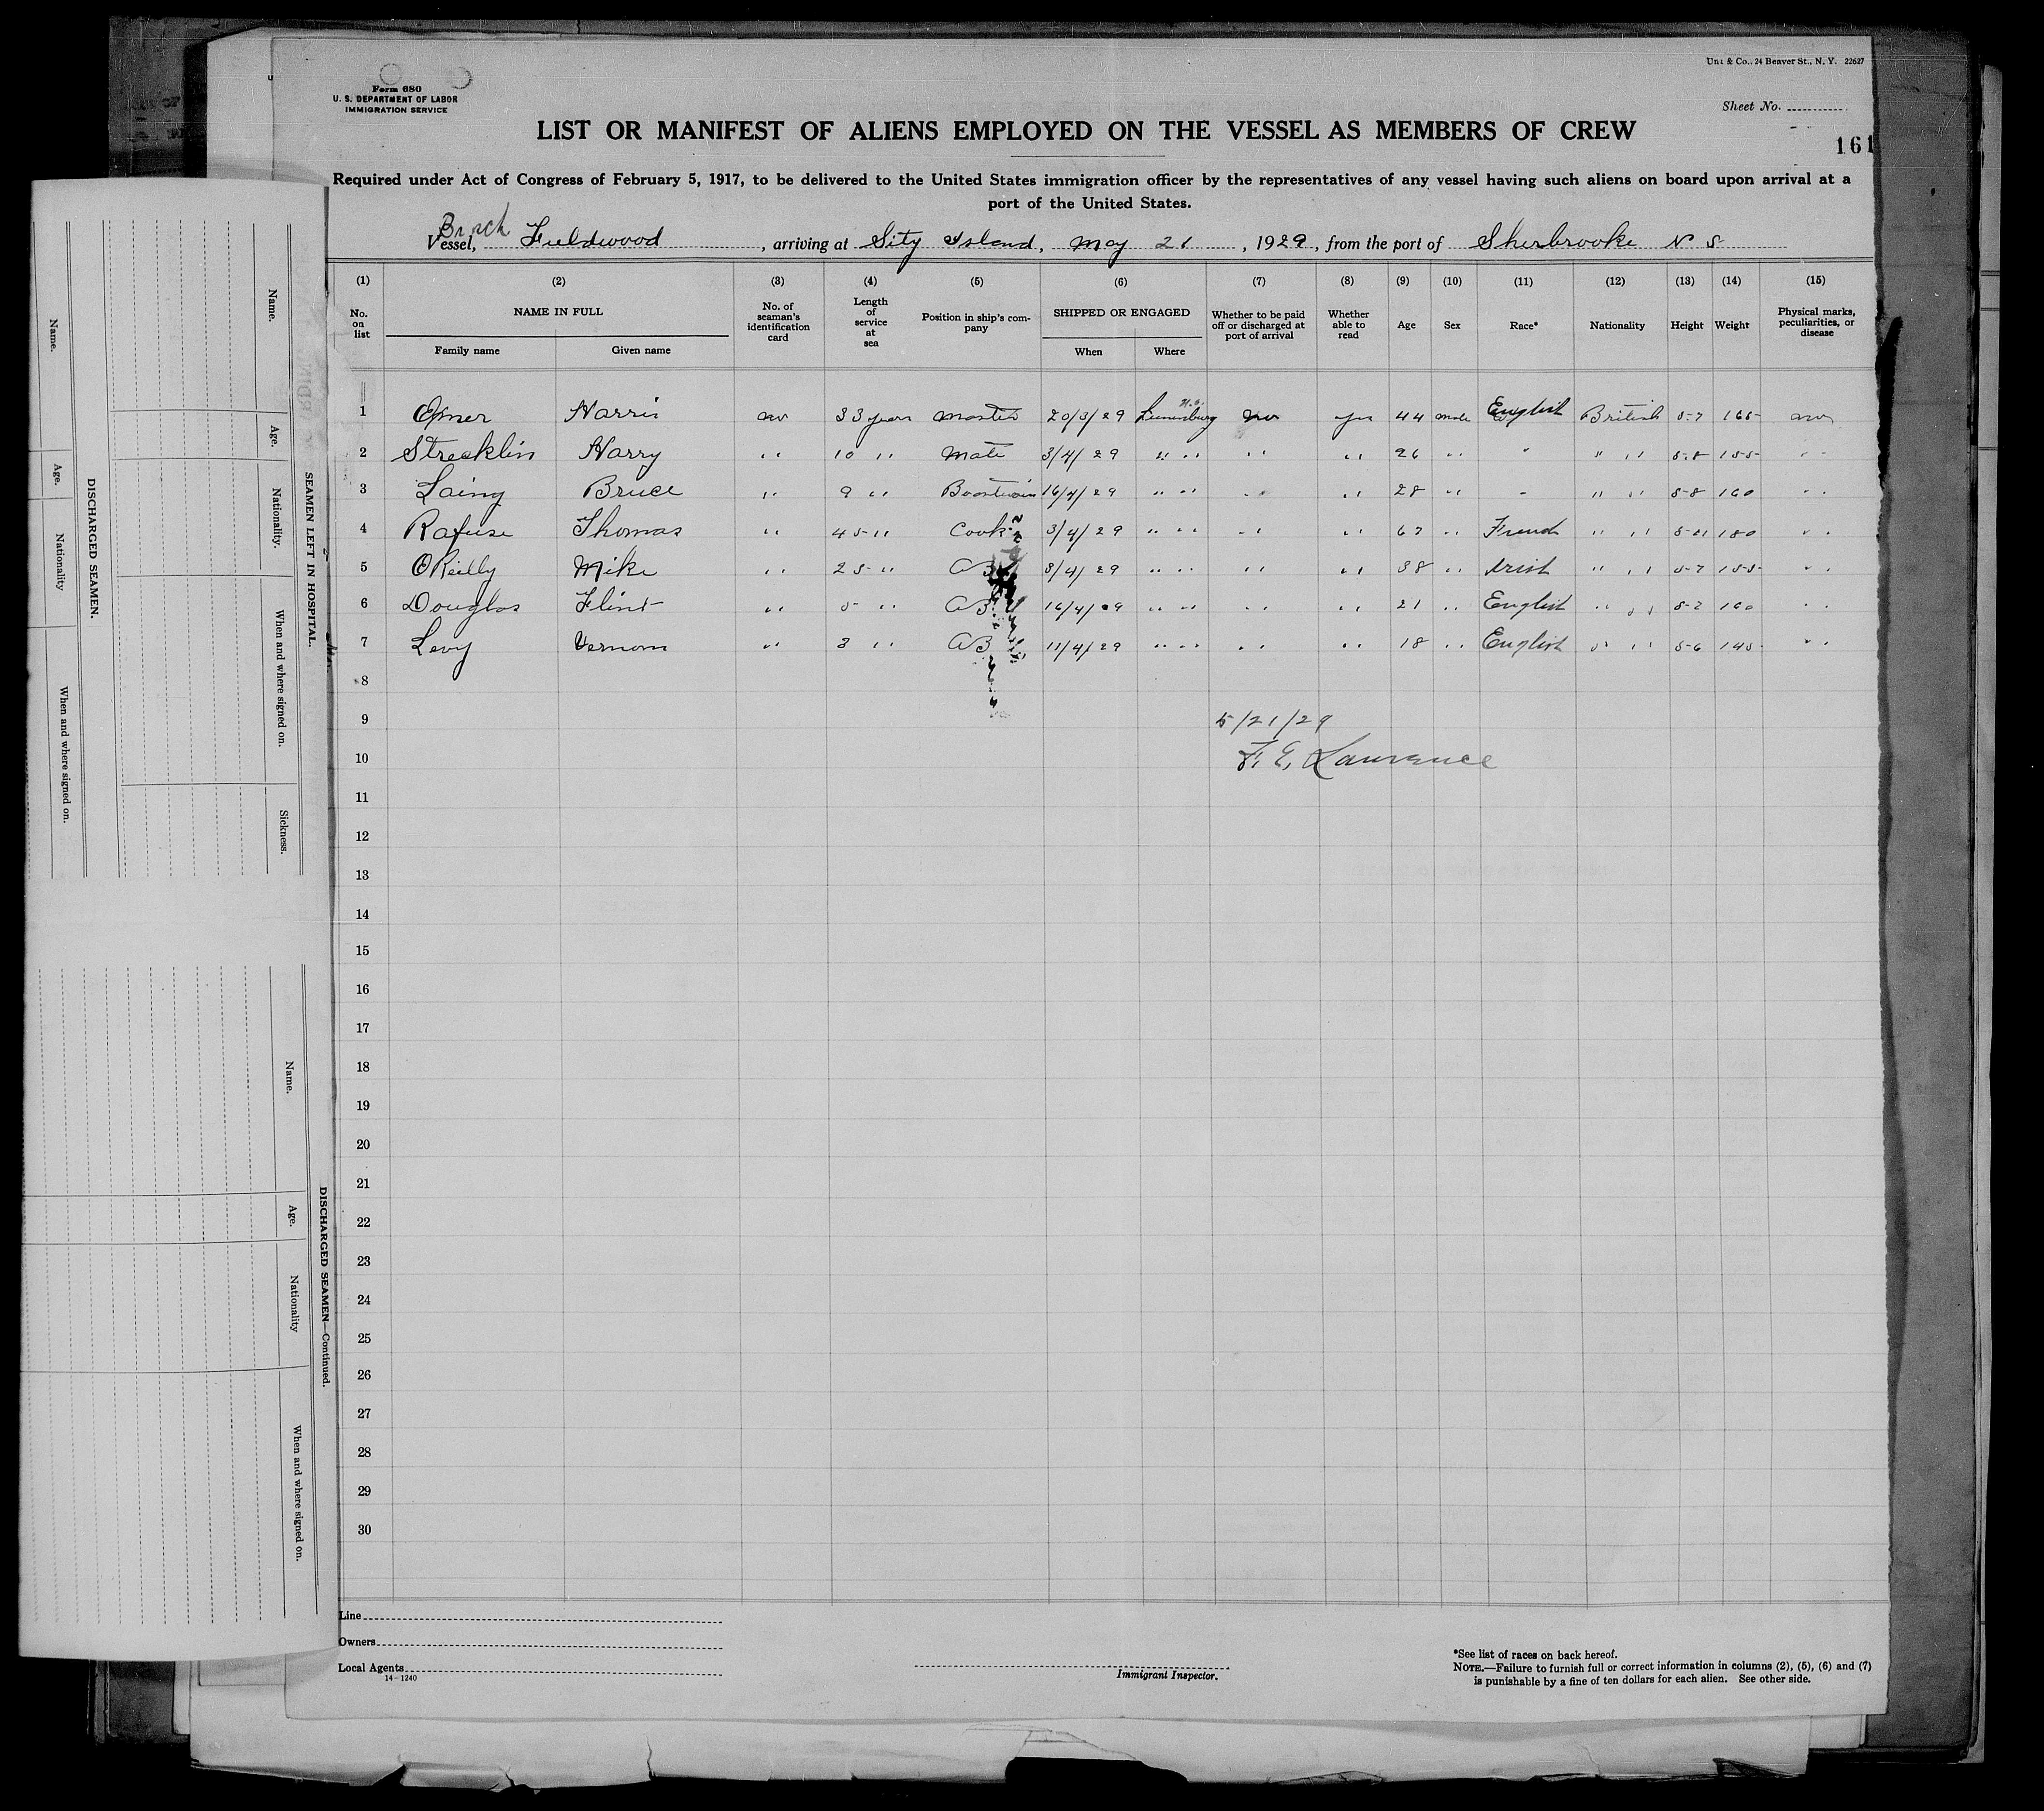 Uni & Co., 24 Beaver St., N. Y. 22627
Form 680
U. S. DEPARTMENT OF LABOR
IMMIGRATION SERVICE
Sheet No.
LIST OR MANIFEST OF ALIENS EMPLOYED ON THE VESSEL AS MEMBERS OF CREW
161
Required under Act of Congress of February 5, 1917, to be delivered to the United States immigration officer by the representatives of any vessel having such aliens on board upon arrival at a
port of the United States.
Vessel, Fieldwood, arriving at Sity Island, May 21, 1929, from the port of Sherbrooke N S
(1) (2) (3) (4) (5) (6) (7) (8) (9) (10) (11) (12) (13) (14) (15)
No. on list NAME IN FULL Family name Given name No. of seaman's identification card Length of service at sea Position in ship's company SHIPPED OR ENGAGED When Where Whether to be paid off or discharged at port of arrival Whether able to read Age Sex Race* Nationality Height Weight Physical marks, peculiarities, or disease
1 Harris no 33 years Master 20/3/29 Lunenburg N.S. no yes 44 male English British 5-7 165 no
2 Strecklin Harry " 10 " Mate 3/4/29 " " " " 26 " " " " 5-8 155 "
3 Laing Bruce " 9 " Boatswain 16/4/29 " " " " 28 " " " " 5-8 160 "
4 Rafuse Thomas " 45 " Cook 3/4/29 " " " " 67 " French " " 5-11 180 "
5 OReilly Mike " 25 " AB 3/4/29 " " " " 38 " Irish " " 5-7 155 "
6 Douglas Flint " 5 " AB 16/4/29 " " " " 21 " English " " 5-2 160 "
7 Levy Vernom " 3 " AB 11/4/29 " " " " 18 " English " " 5-6 145 "
8
9 5/21/29
10 F. E. Lawrence
11
12
13
14
15
16
17
18
19
20
21
22
23
24
25
26
27
28
29
30
Line
Owners
Local Agents
14-1240
Immigrant Inspector.
*See list of races on back hereof.
NOTE.—Failure to furnish full or correct information in columns (2), (5), (6) and (7)
is punishable by a fine of ten dollars for each alien. See other side.
SEAMEN LEFT IN HOSPITAL.
Name.
Age.
Nationality.
When and where signed on.
Sickness.
DISCHARGED SEAMEN.
Name.
Age.
Nationality
When and where signed on.
DISCHARGED SEAMEN—Continued.
Name.
Age.
Nationality
When and where signed on.